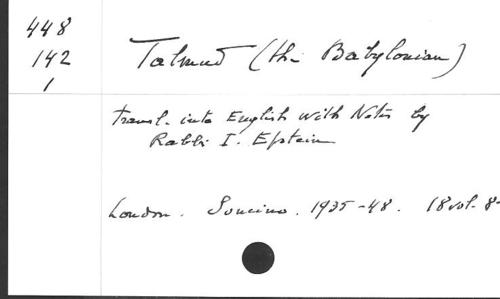 448
142
1
Talmud (the Babylonian)
transl. into English with Notes by
Rabbi I. Epstein
London. Soncino. 1935-48. 18 vol. 8-